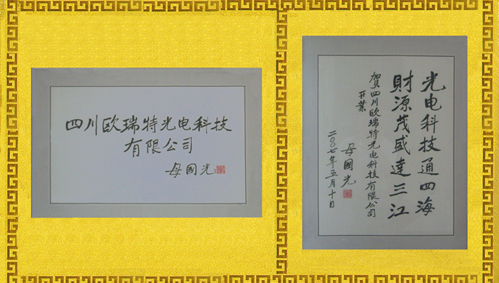 四川欧瑞特光电科技
有限公司
母國光
光电科技通四海
財源茂盛達三江
贺四川欧瑞特光电科技有限公司
开業
母國光
二〇〇七年五月十日